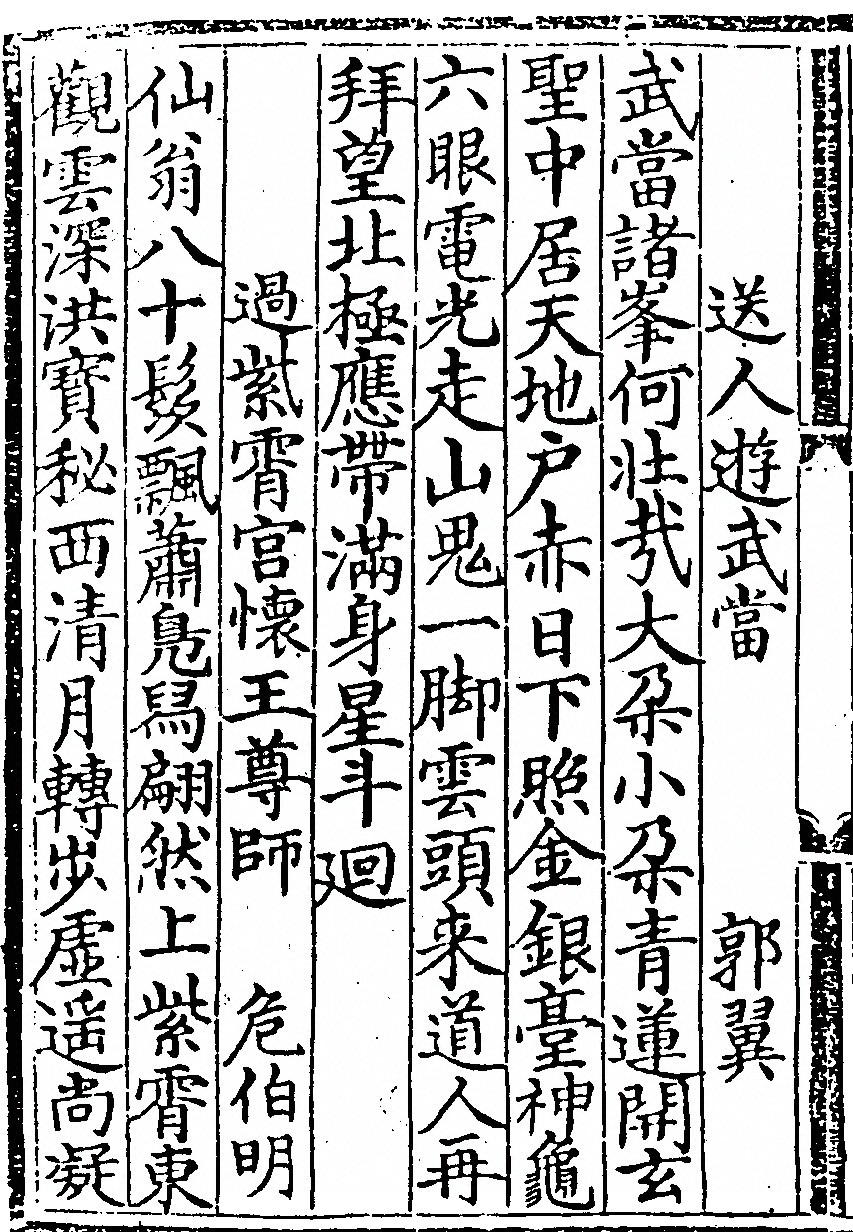 送人遊武當 郭翼
武當諸峯何壯哉大朶小朶青蓮開玄
聖中居天地户赤日下照金銀臺神龜
六眼電光走山鬼一脚雲頭来道人再
拜望北極應帶滿身星斗廻
過紫霄宫懐王尊師 危伯明
仙翁八十鬚飄蕭鳬舄翩然上紫霄東
觀雲深洪寶秘西清月轉步虛遥尚凝